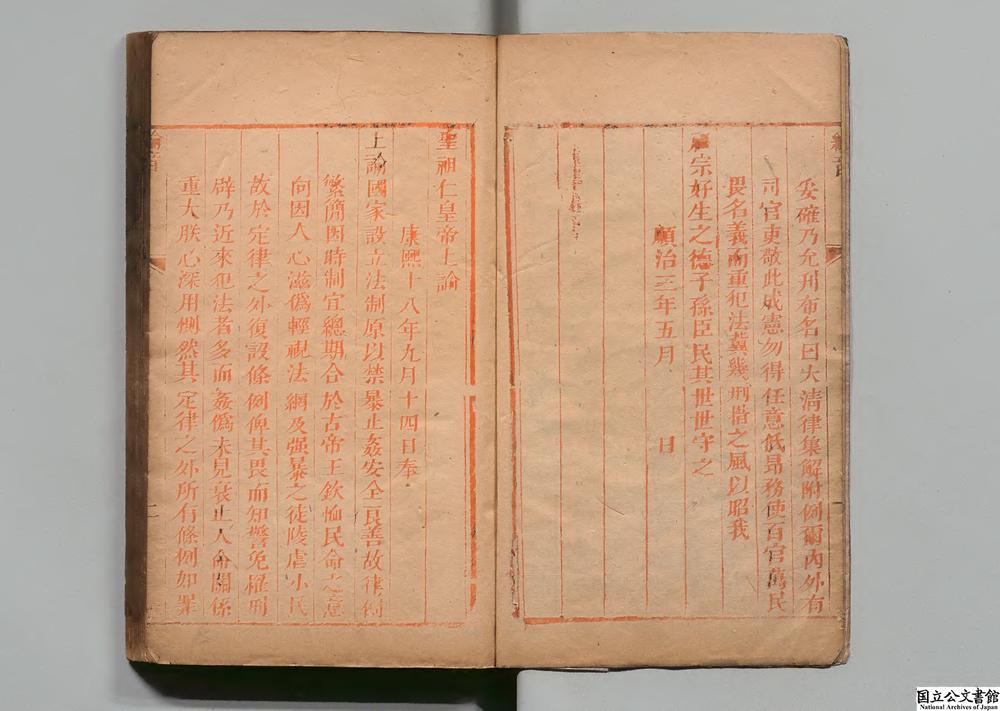 妥確乃允刊布名曰大清律集解附例爾內外有
司官吏敬此成憲勿得任意低昻務使百官萬民
畏名義而重犯法冀幾刑措之風以昭我
祖宗好生之德子孫臣民其世世守之
順治三年五月 日
聖祖仁皇帝上諭
康熙十八年九月十四日奉
上諭國家設立法制原以禁暴止姦安全良善故律例
繁簡因時制宜總期合於古帝王欽恤民命之意
向因人心滋僞輕視法網及强暴之徒陵虐小民
故於定律之外復設條例俾其畏而知警免罹刑
辟乃近來犯法者多而姦僞未見衰止人命關係
重大朕心深用惻然其定律之外所有條例如罪
綸音
二
国立公文書館
National Archives of Japan